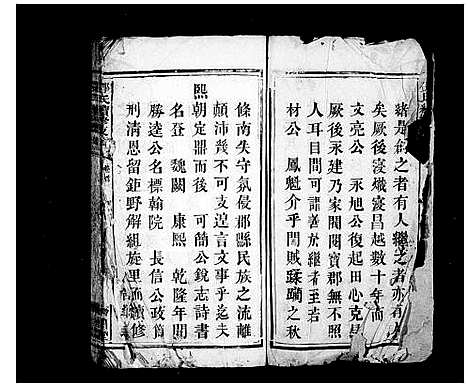 緒是創之者有人繼之者亦有人
矣厥後寖熾寖昌越數十年而
文亮公 永旭公復起田心克
厥後永建乃家閥閱寶郡無不照
人耳目間可謂善於繼者至若
材公 鳳魁介乎闖賊蹂躪之秋
條南失守氛侵郡縣民族之流離
顛沛幾不可支遑言文事乎迨夫
熙朝定鼎而後 可簡公銳志詩書
名登 魏闕 康熙 乾隆年間
勝達公名標翰院 長信公政簡
刑清恩留鉅野解組旋里而續修